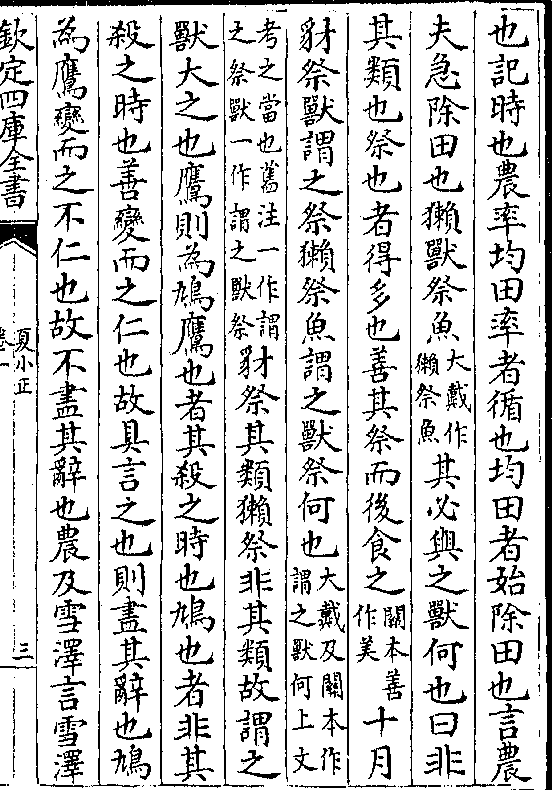 也記時也農率均田率者循也均田者始除田也言農
夫急除田也獺獸祭魚大戴作獺祭魚其必與之獸何也曰非
其類也祭也者得多也善其祭而後食之關本善作美十月
豺祭獸謂之祭獺祭魚謂之獸祭何也大戴及關本作謂之獸何上文
考之當也舊注一作謂之祭獸一作謂之獸祭豺祭其類獺祭非其類故謂之
獸大之也鷹則為鳩鷹也者其殺之時也鳩也者非其
殺之時也善變而之仁也故具言之也則盡其辭也鳩
為鷹變而之不仁也故不盡其辭也農及雪澤言雪澤
欽定四庫全書
夏小正
卷一
三